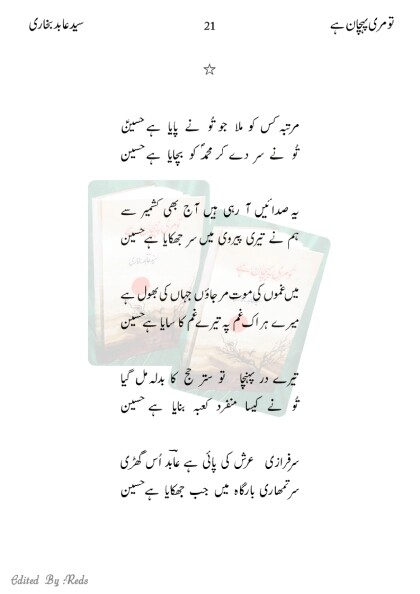 تو مری پہچان ہے 21 سید عابد بخاری
☆
مرتبہ کس کو ملا جو تُو نے پایا ہے حسینؑ
تُو نے سر دے کر محمدؐ کو بچایا ہے حسین
یہ صدائیں آ رہی ہیں آج بھی کشمیر سے
ہم نے تیری پیروی میں سر جھکایا ہے حسین
میں غموں کی موت مر جاؤں جہاں کی بھول ہے
میرے ہر اک غم پہ تیرے غم کا سایا ہے حسین
تیرے در پہنچا تو ستر حج کا بدلہ مل گیا
تُو نے کیسا منفرد کعبہ بنایا ہے حسین
سرفرازی عرش کی پائی ہے عابدؔ اُس گھڑی
سر تمھاری بارگاہ میں جب جھکایا ہے حسین
Edited By :Reds